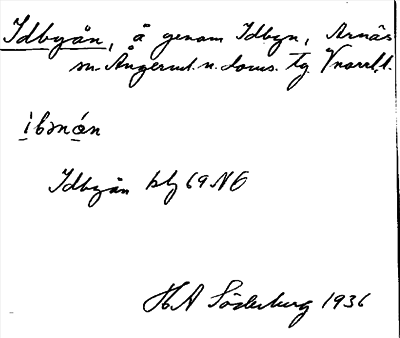 Idbyån, å genom Idbyn, Arnäs
sn. Ångerml. n. doms. Tg. Vnorrl. l.
ìbmǝ́n
Idbyån blg 69 NO
H A Söderberg 1936